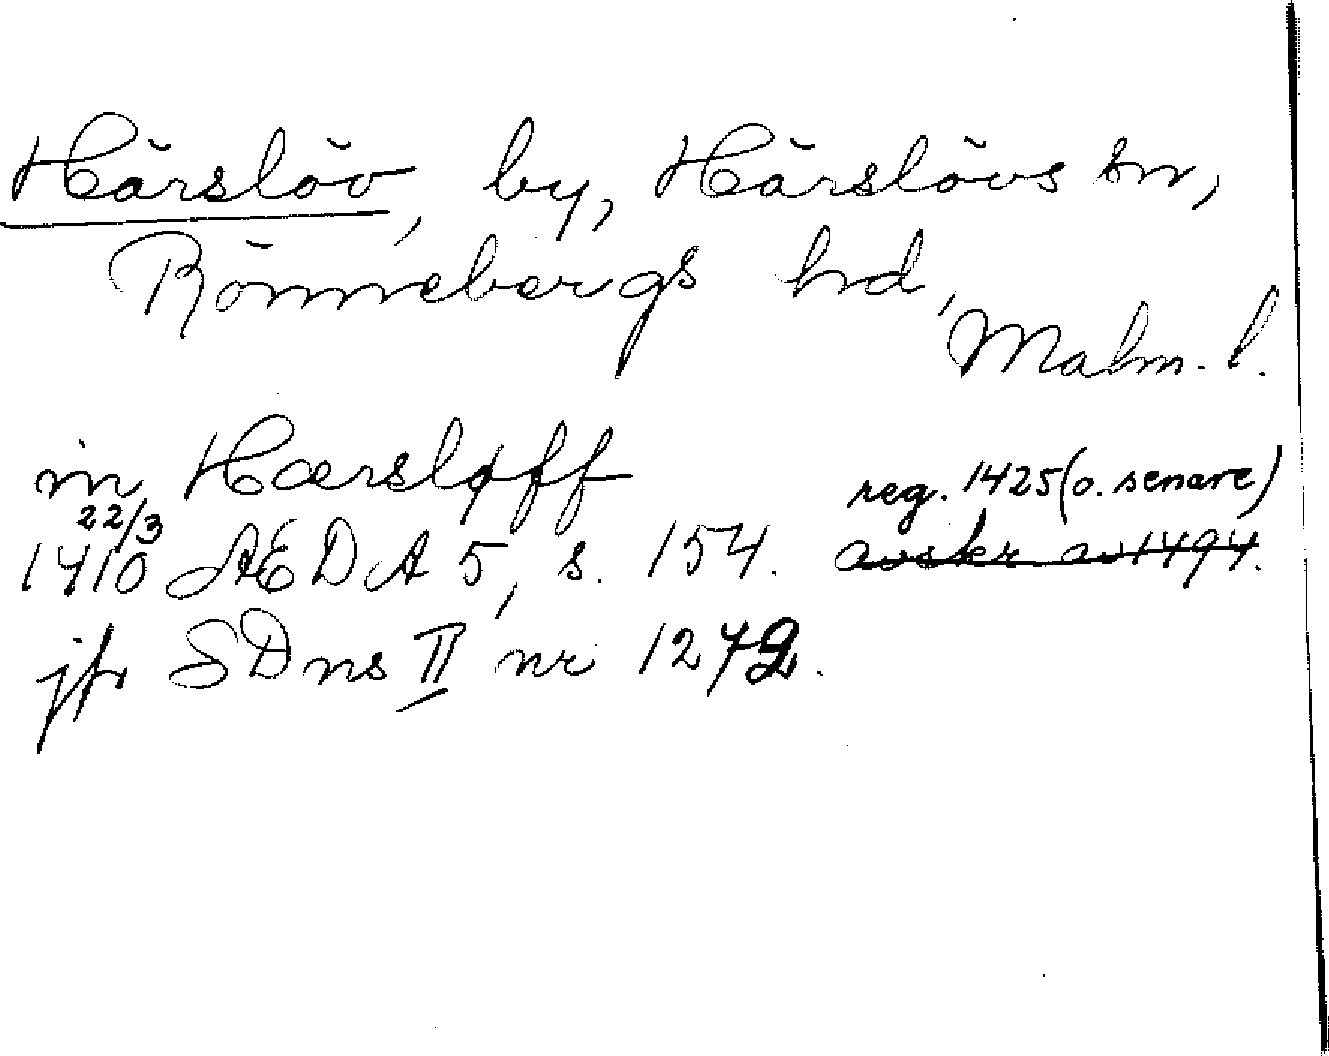 Härslöv, by, Härslövs sn,
Rönnebergs hd,
Malm. l.
in Hærsløff
reg. 1425 (o. senare)
22/3
1410 ÆDA 5, s. 154. avskr av 1494.
jfr SDns II nr 1272.